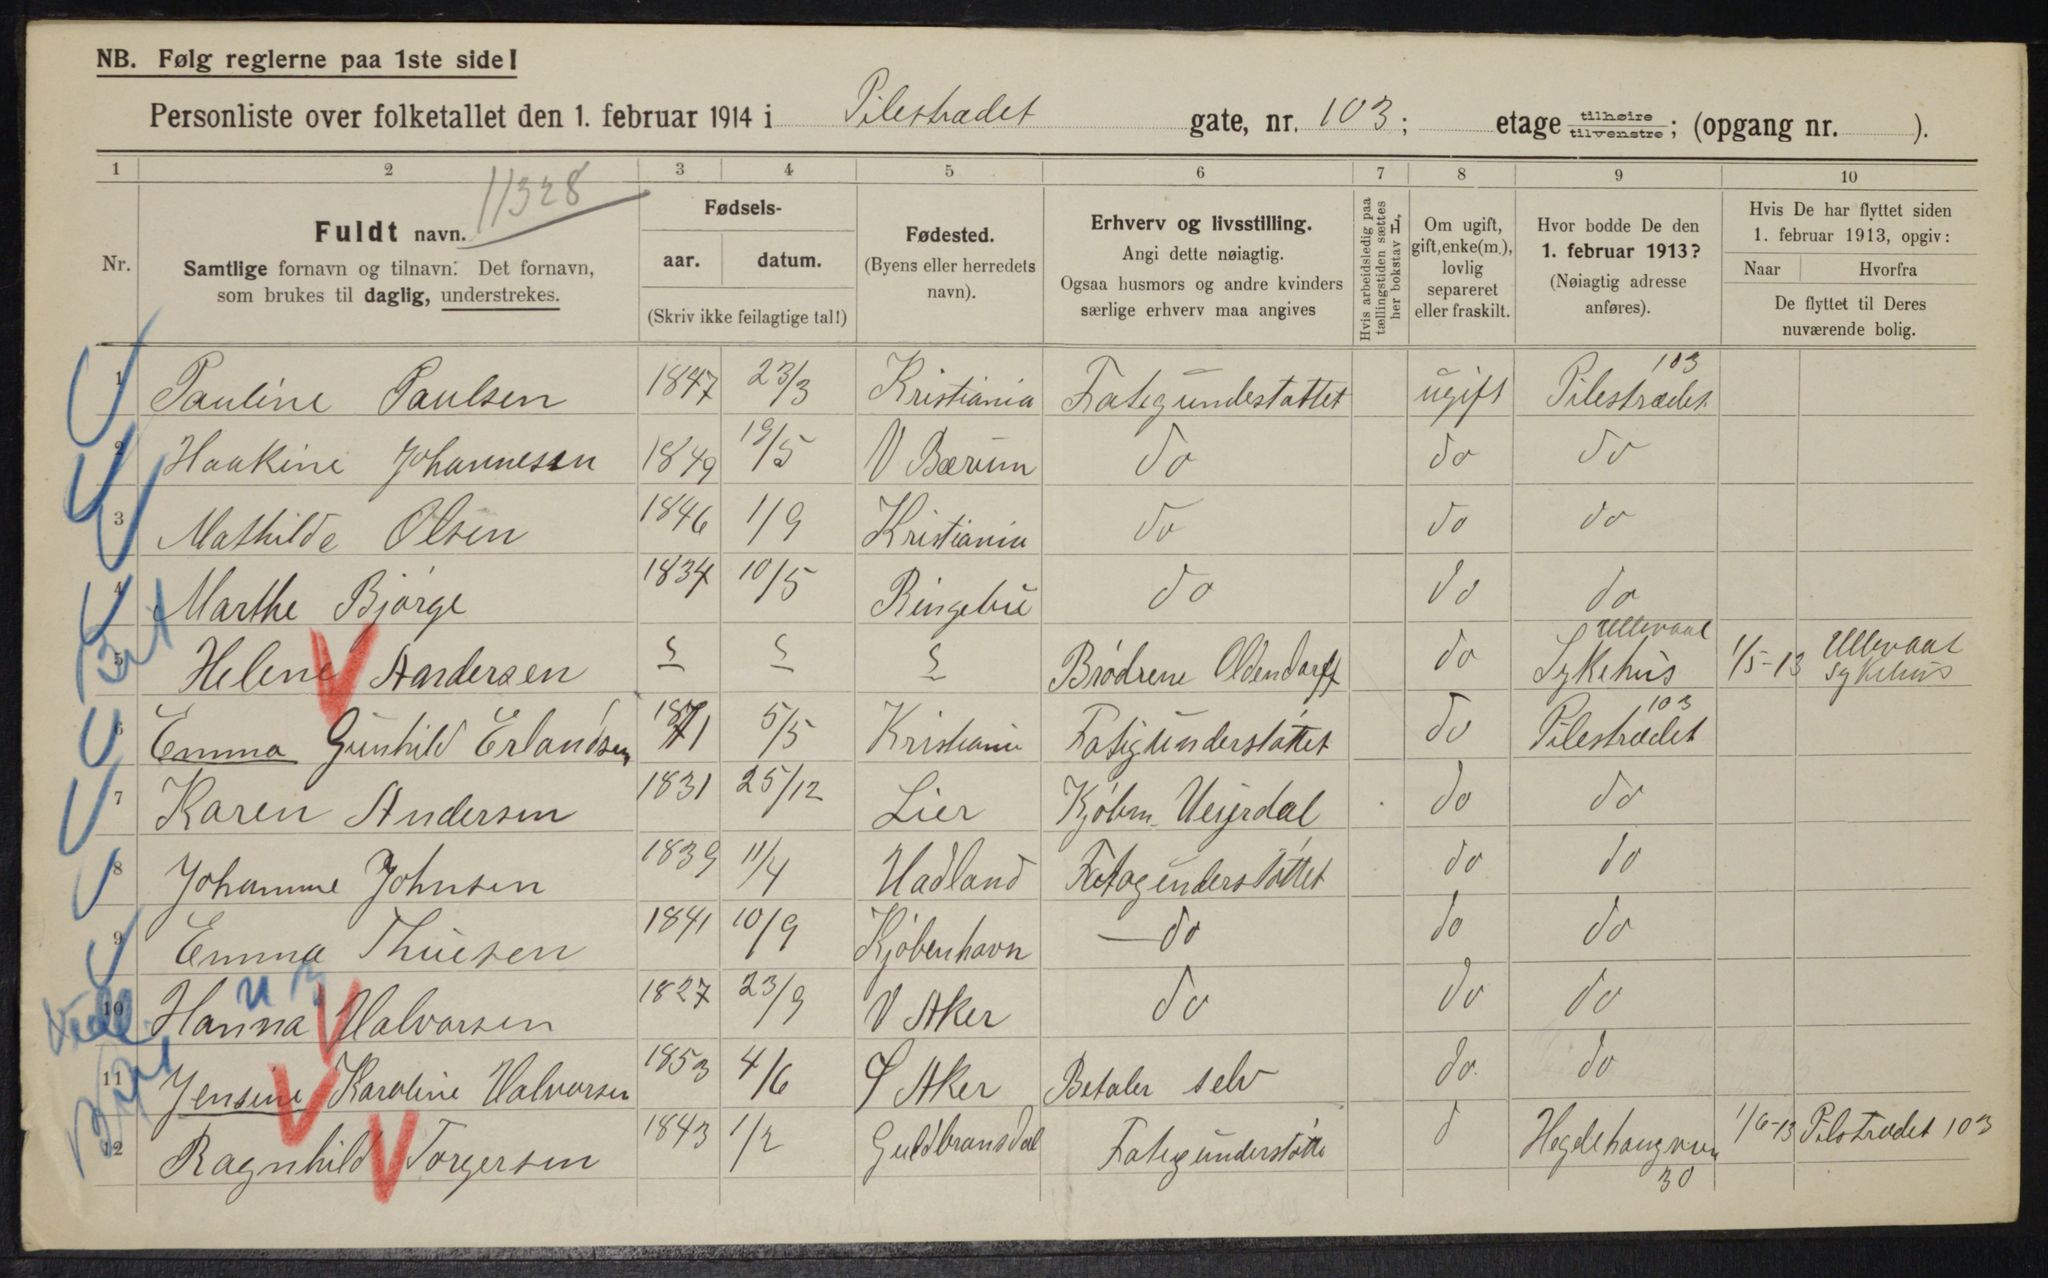 NB. Følg reglerne paa 1ste side!
Personliste over folketallet den 1. februar 1914 i Pilestrædet gate, nr. 103; etage tilhøire tilvenstre; (opgang nr. ).
1 2 3 4 5 6 7 8 9 10
11328
Nr.
Fuldt navn.
Samtlige fornavn og tilnavn. Det fornavn,
som brukes til daglig, understrekes.
Fødsels-
aar. datum.
(Skriv ikke feilagtige tal!)
Fødested.
(Byens eller herredets
navn).
Erhverv og livsstilling.
Angi dette nøiagtig.
Ogsaa husmors og andre kvinders
særlige erhverv maa angives
Hvis arbeidsledig paa
tællingstiden sættes
her bokstav L.
Om ugift,
gift, enke(m.),
lovlig
separeret
eller fraskilt.
Hvor bodde De den
1. februar 1913?
(Nøiagtig adresse
anføres).
Hvis De har flyttet siden
1. februar 1913, opgiv:
Naar Hvorfra
De flyttet til Deres
nuværende bolig.
1 Pauline Paulsen 1847 23/3 Kristiania Fatigundestøttet ugift Pilestrædet 103
2 Haakine Johannesen 1849 19/5 V Bærum do do do
3 Mathilde Olsen 1846 1/9 Kristiania do do do
4 Marthe Bjørge 1834 10/5 Ringebu do do do
5 Helene Aandersen Brødrene Oldendorff do Ullevaal Sykehus 1/5-13 Ullevaal Sykehus
6 Emma Gunhild Erlandsen 1871 5/5 Kristiania Fatigunderstøttet do Pilestrædet 103
7 Karen Andersen 1831 25/12 Lier Kjøbm. Weijerdal do do
8 Johanne Johnsen 1839 11/4 Hadland Fatigunderstøttet do do
9 Emma Thuesen 1841 10/9 Kjøbenhavn — do do do
10 Hanna Halvorsen 1827 23/9 V Aker do do do
11 Jensine Karoline Halvorsen 1853 4/6 Ø Aker Betaler selv do do
12 Ragnhild Torgersen 1843 1/2 Guldbransdal Fatigunderstøtte d Hegdehaugveien 30 1/6-13 Pilstrædet 103